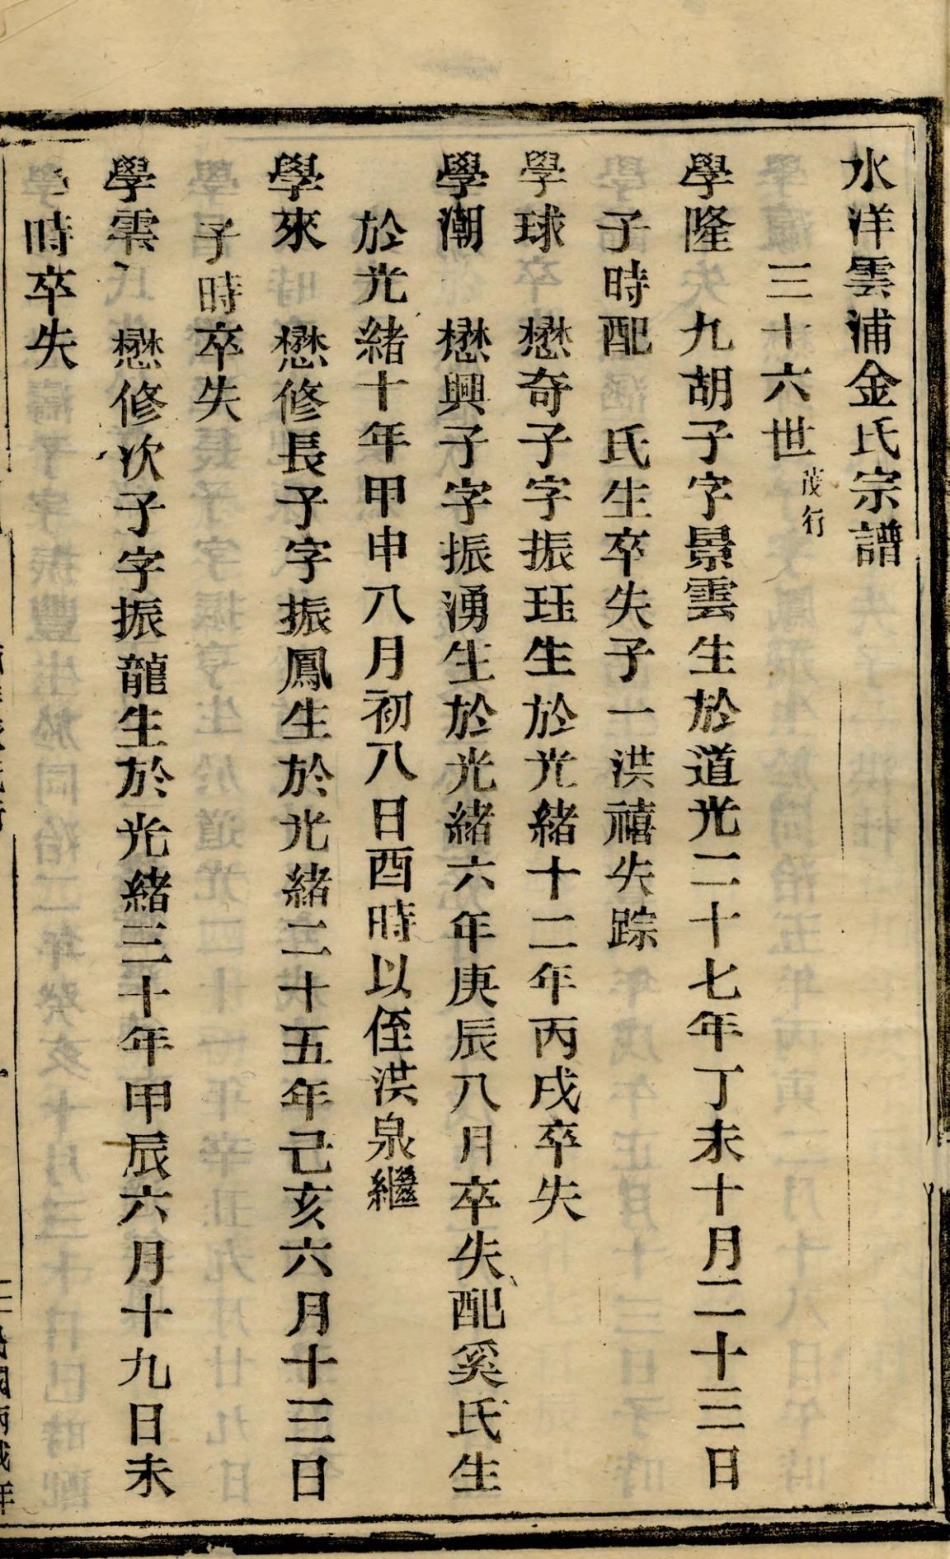 水洋雲浦金氏宗譜
三十六世茂行
學隆　九胡子字景雲生於道光二十七年丁未十月二十三日
子時配　氏生卒失子一洪禧失踪
學球　懋奇子字振珏生於光緒十二年丙戌卒失
學潮　懋興子字振湧生於光緒六年庚辰八月卒失配奚氏生
於光緒十年甲申八月初八日酉時以侄洪泉繼
學來　懋修長子字振鳳生於光緒二十五年己亥六月十三日
子時卒失
學雲　懋修次子字振龍生於光緒三十年甲辰六月十九日未
時卒失